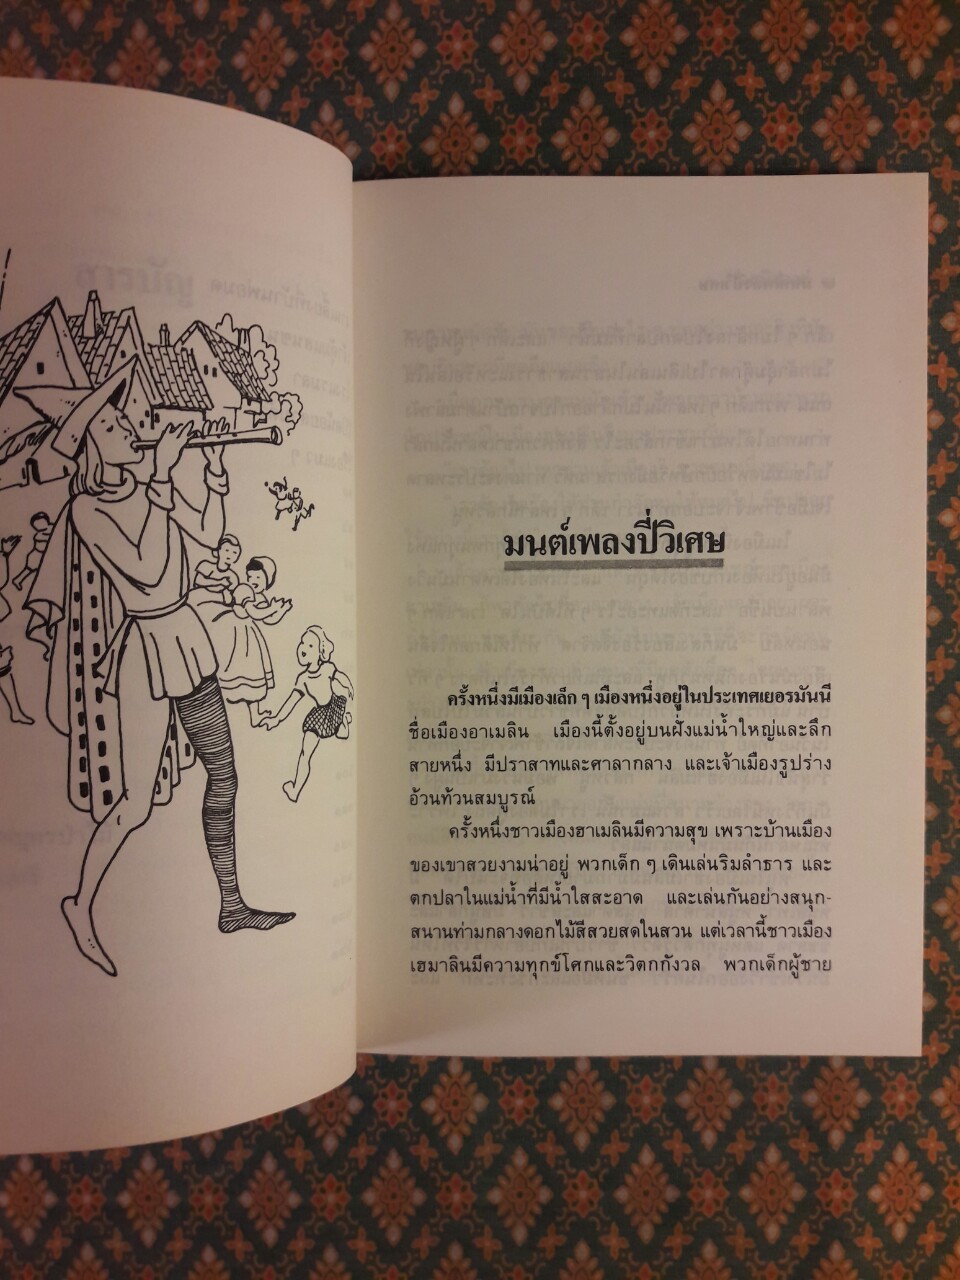 มนต์เพลงปี่วิเศษ
ครั้งหนึ่งมีเมืองเล็ก ๆ เมืองหนึ่งอยู่ในประเทศเยอรมันนี
ชื่อเมืองอาเมลิน เมืองนี้ตั้งอยู่บนฝั่งแม่น้ำใหญ่และลึก
สายหนึ่ง มีปราสาทและศาลากลาง และเจ้าเมืองรูปร่าง
อ้วนท้วนสมบูรณ์
ครั้งหนึ่งชาวเมืองฮาเมลินมีความสุข เพราะบ้านเมือง
ของเขาสวยงามน่าอยู่ พวกเด็ก ๆ เดินเล่นริมลำธาร และ
ตกปลาในแม่น้ำที่มีน้ำใสสะอาด และเล่นกันอย่างสนุก-
สนานท่ามกลางดอกไม้สีสวยสดในสวน แต่เวลานี้ชาวเมือง
เฮมาลินมีความทุกข์โศกและวิตกกังวล พวกเด็กผู้ชาย